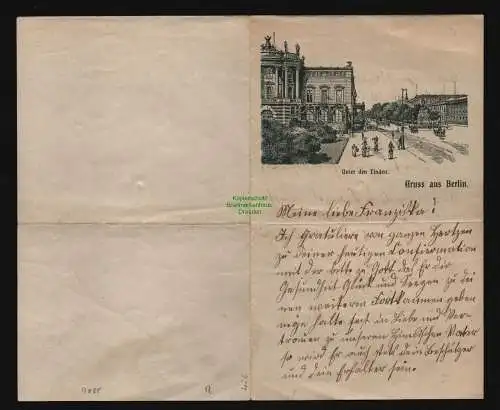 Unter den Linden.
Gruss aus Berlin.
Kopierschutz
Briefmarkenhaus
Dresden
Meine liebe Franziska!
Ich Gratuliere von ganzen Hertzen
zu deiner heutigen Confirmation
mit der bitte zu Gott das Er dir
Gesundheit Glück und Seegen zu dei
nen weiterm Fortkammen geben
möge halte fest in Liebe und Ver-
trauen zu unseren Himlischen Vater
so wird Er auch stets dein Beschützer
und dein Erhalter sein.